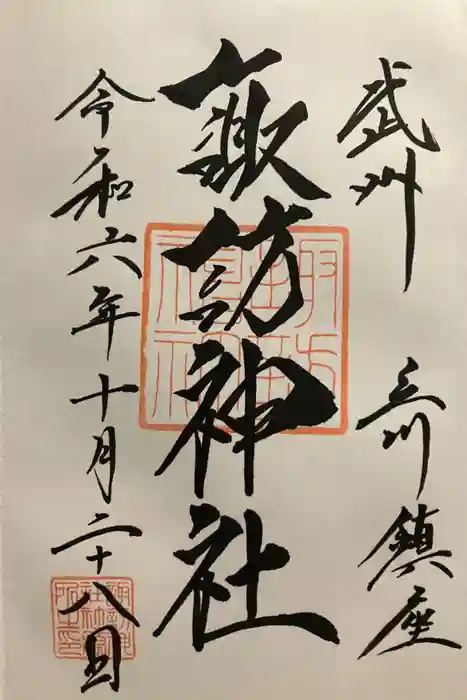 武州 立川鎮座
諏訪神社
令和六年十月二十八日
諏訪神社